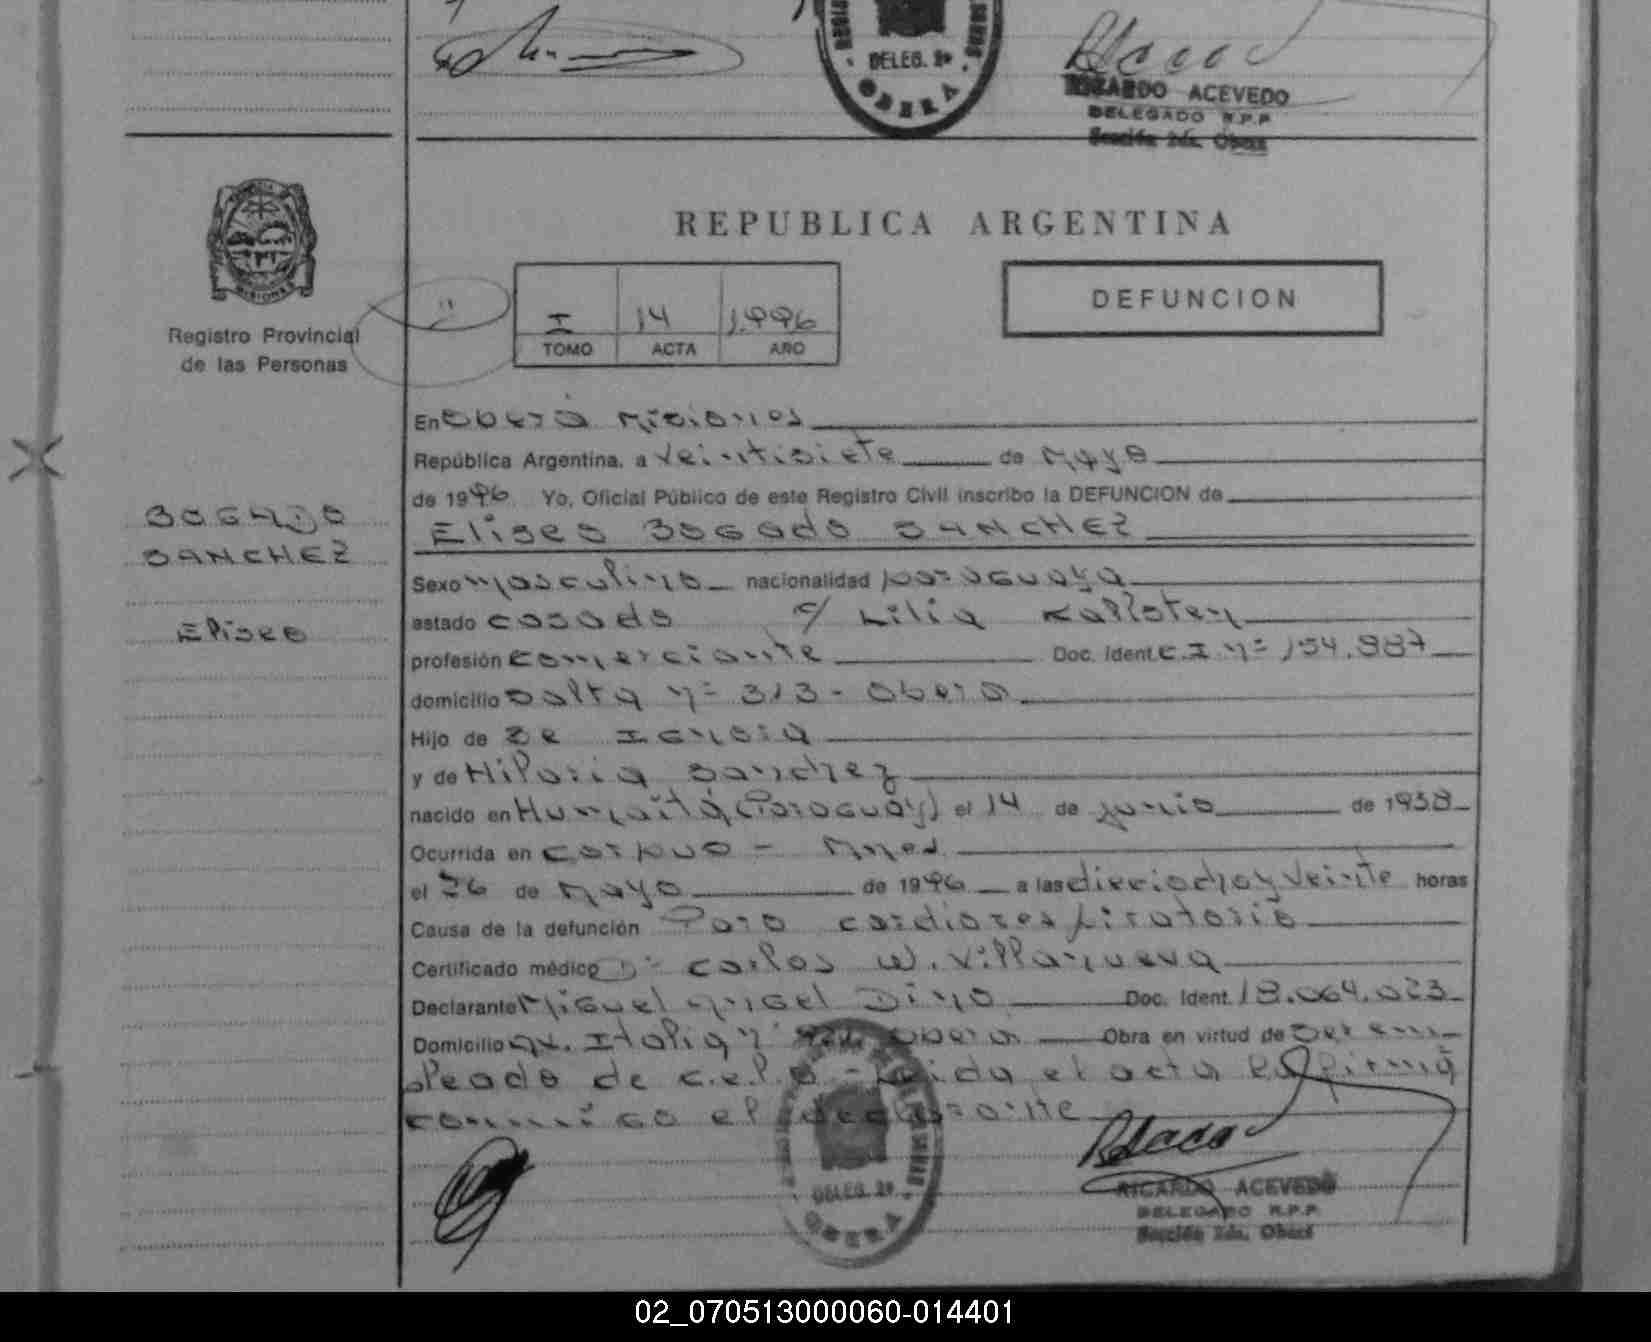 DELEG. 2ª
OBERA
RICARDO ACEVEDO
DELEGADO R.P.P.
Sección 2da. Oberá
MISIONES
Registro Provincial
de las Personas
REPUBLICA ARGENTINA
I 14 1.996
TOMO ACTA AÑO
DEFUNCION
BOGADO
SANCHEZ
Eliseo
En Oberá Misiones
República Argentina, a veintisiete de Mayo
de 1996 Yo, Oficial Público de este Registro Civil inscribo la DEFUNCION de
Eliseo BOGado SANCHEZ
Sexo masculino nacionalidad paraguaya
estado casado c/ Lilia
profesión comerciante Doc. Ident. C.I. nº 154.987
domicilio Salta nº 313 - Oberá
Hijo de
y de Hilaria Sanchez
nacido en Humaitá (Paraguay) el 14 de junio de 1938
Ocurrida en Corpus - Mnes.
el 26 de Mayo de 1996 a las dieciocho y veinte horas
Causa de la defunción Paro cardiorespiratorio
Certificado médico Dr. Carlos W. Villanueva
Declarante Miguel Angel Doc. Ident. 18.064.023
Domicilio Av. Italia nº Oberá Obra en virtud de Ser em-
pleado de C.E.L.O - Leida el acta la firma
conmigo el declarante
DELEG. 2ª
OBERA
RICARDO ACEVEDO
DELEGADO R.P.P.
Sección 2da. Oberá
02_070513000060-014401